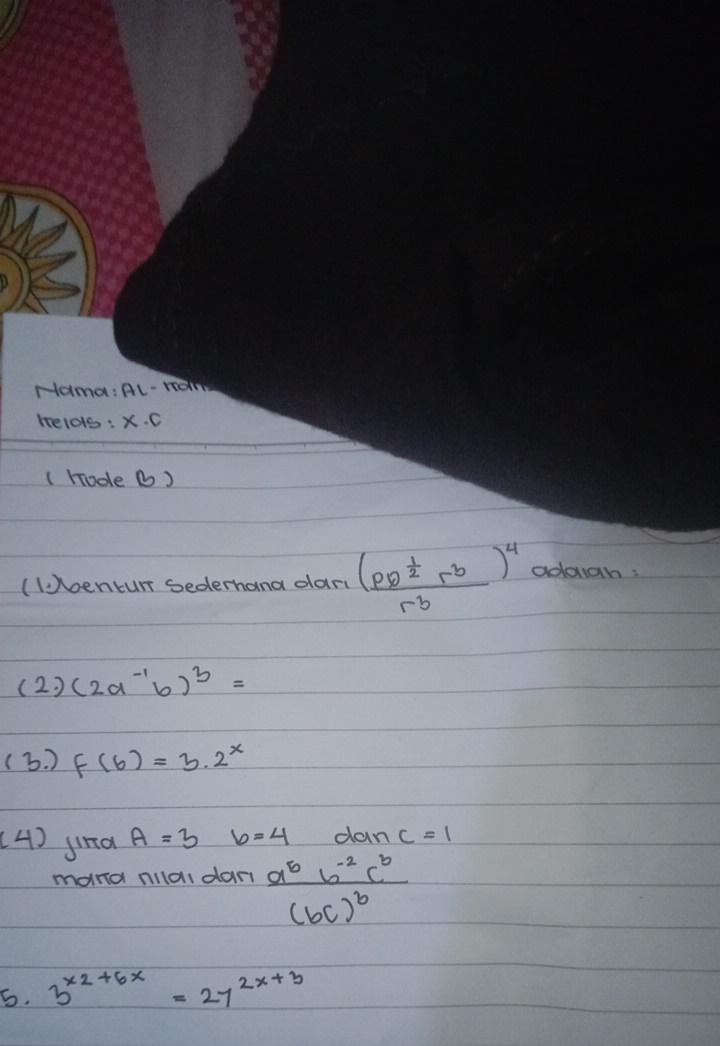 Nama: AL-
Kelas: X.C
(Kode B)
(1.) bentuk sederhana dari (pq^½ r³ / r³)⁴ adalah:
(2.) (2a⁻¹b)³ =
(3.) F(6) = 3.2ˣ
(4) jika A = 3 b = 4 dan c = 1
maka nilai dari a⁵ b⁻² c³ / (bc)³
5. 3^x2+6x = 27^2x+3